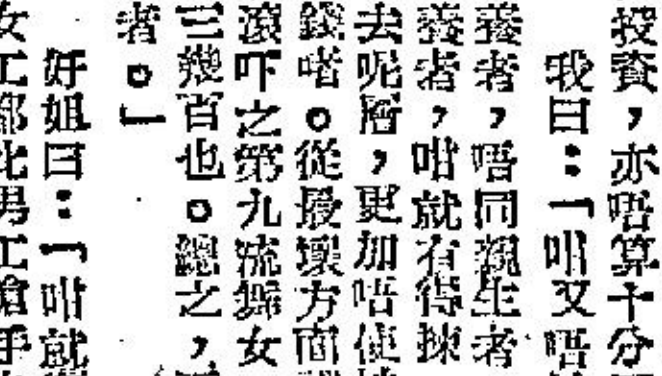 投資，亦唔算十分
我曰：「咁又唔
養者，唔同親生者
養者，咁就有得揀
去呢層，更加唔使
錢啫。從最壞方面
滾吓之第九流舞女
三幾百也。總之，
者。」
好姐曰：「咁就
女工都比男工搶手